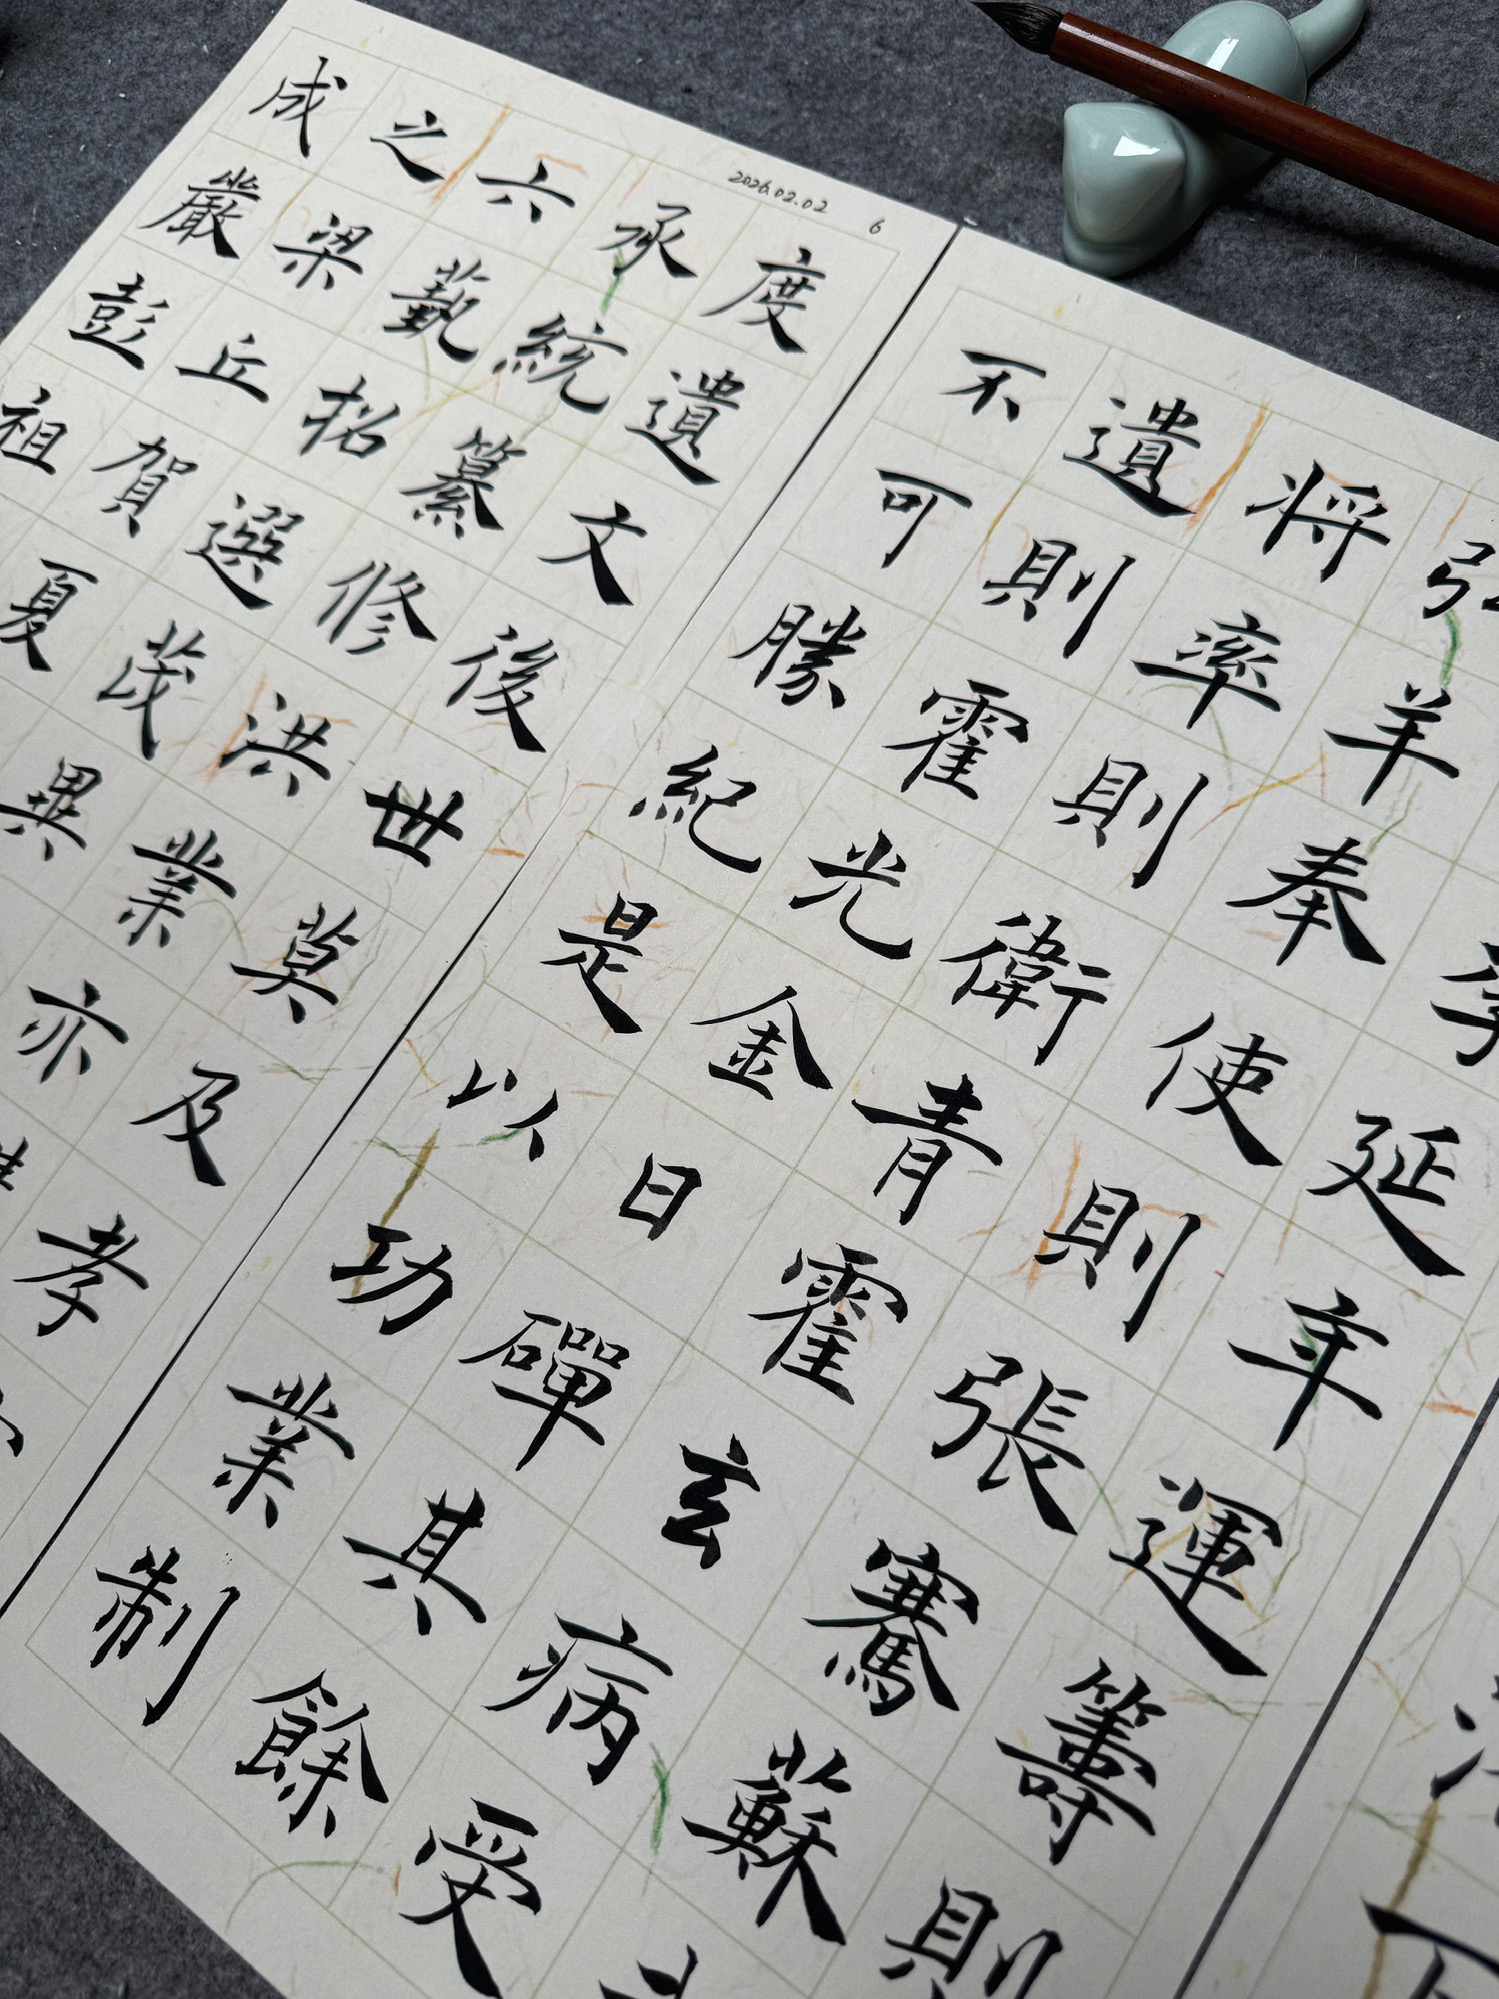 2026.02.02 6
延年運籌則
羊奉使則張騫蘇
将率則衛青霍去病受
遺則霍光金日磾其餘
不可勝紀是以功業制
度遺文後世莫及孝
承統纂修洪業亦
六蓺招選茂異
之梁丘賀夏
成嚴彭祖